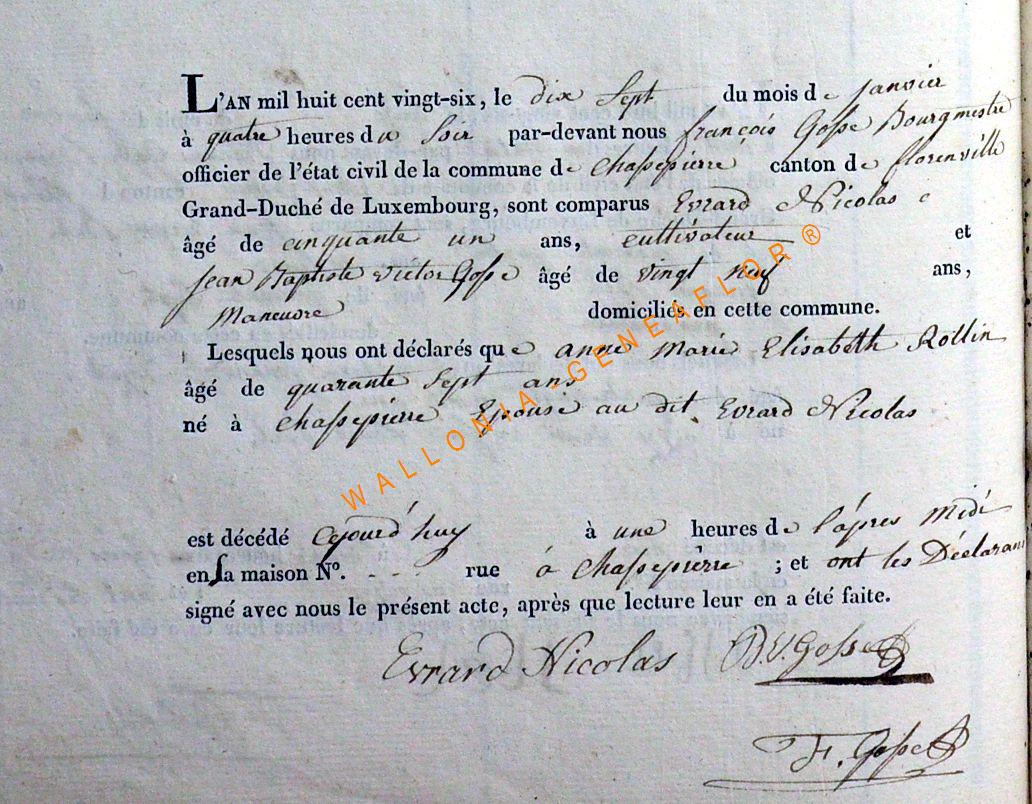 L'AN mil huit cent vingt-six, le dix Sept du mois de Janvier
à quatre heures du Soir par-devant nous françois Gosse Bourgmestre
officier de l'état civil de la commune de Chassepierre canton de florenville
Grand-Duché de Luxembourg, sont comparus Evrard Nicolas
âgé de cinquante un ans, cultivateur et
Jean Baptiste Victor Gosse âgé de vingt neuf ans,
Maneuvre domiciliés en cette commune.
Lesquels nous ont déclarés que anne Marie Elisabeth Rollin
âgé de quarante Sept ans
né à Chassepierre Epouse au dit Evrard Nicolas
est décédé cejourd'huy à une heures de l'apres Midi
en sa maison N°. - - - - rue à Chassepierre ; et ont les Déclarans
signé avec nous le présent acte, après que lecture leur en a été faite.
Evrard Nicolas B.V. Gosse
F. Gosse
WALLONIA-GENEAFLOR ®